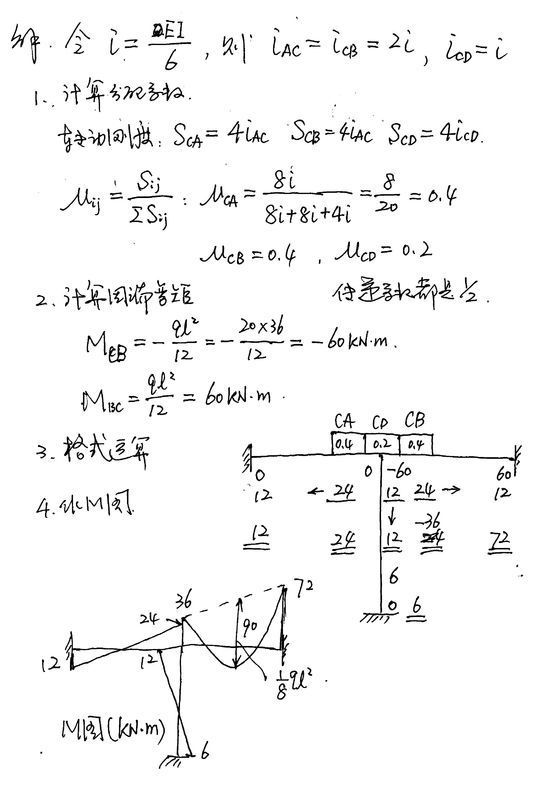 解. 令 i = EI/6 , 则 iAC = iCB = 2i , iCD = i
1. 计算分配系数.
转动刚度: SCA = 4iAC SCB = 4iAC SCD = 4iCD.
μij = Sij/ΣSij : μCA = 8i/(8i+8i+4i) = 8/20 = 0.4
μCB = 0.4 , μCD = 0.2
2. 计算固端弯矩 传递系数都是1/2.
MCB = -ql²/12 = -20×36/12 = -60kN·m.
MBC = ql²/12 = 60kN·m.
CA CD CB
0.4 0.2 0.4
3. 格式运算
0 0 -60 60
12 ← 24 12 24 → 12
4. 作M图.
↓ -36
12 24 12 72
6
0 6
36 72
24
90
12 12
1/8 ql².
M图(kN·m)
6